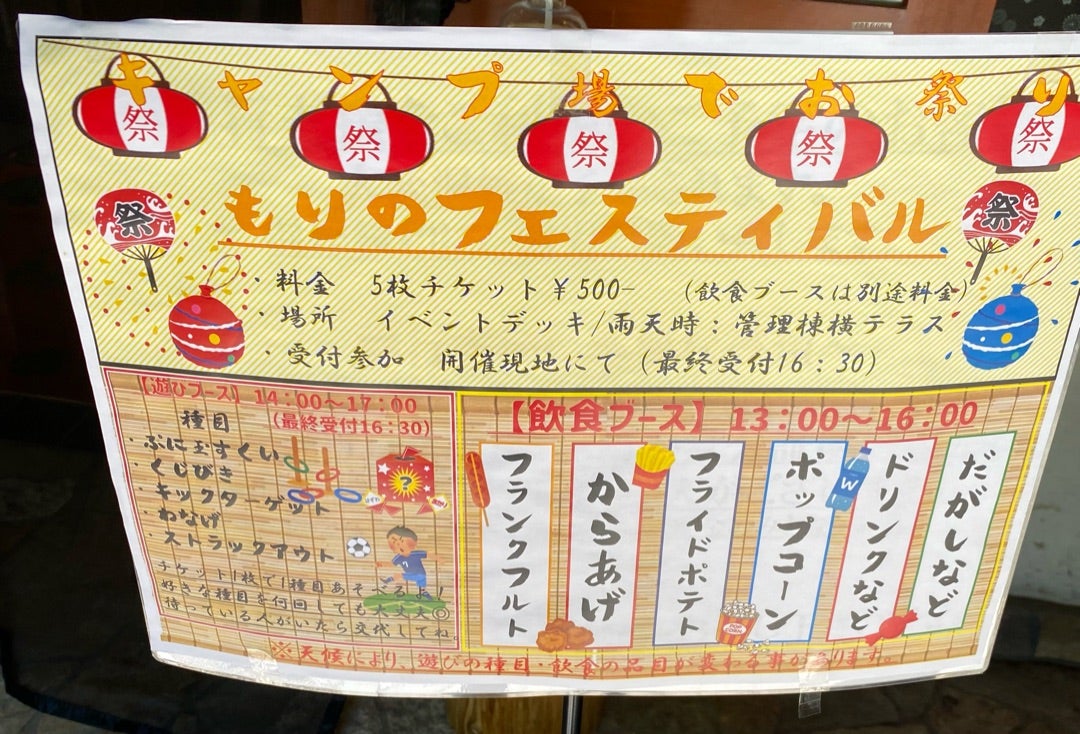 キャンプ場でお祭り
祭 祭 祭 祭 祭
祭 祭
もりのフェスティバル
・料金 5枚チケット￥500- (飲食ブースは別途料金)
・場所 イベントデッキ/雨天時：管理棟横テラス
・受付参加 開催現地にて（最終受付16：30）
【遊びブース】14：00～17：00
種目 (最終受付16：30)
・ぷに玉すくい
・くじびき
・キックターゲット
・わなげ
・ストラックアウト
チケット1枚で1種目あそべるよ！
好きな種目を何回しても大丈夫◎
待っている人がいたら交代してね。
【飲食ブース】13：00～16：00
フランクフルト
からあげ
フライドポテト
ポップコーン
POP CORN
W
ドリンクなど
だがしなど
※天候により、遊びの種目・飲食の品目が変わる事があります。